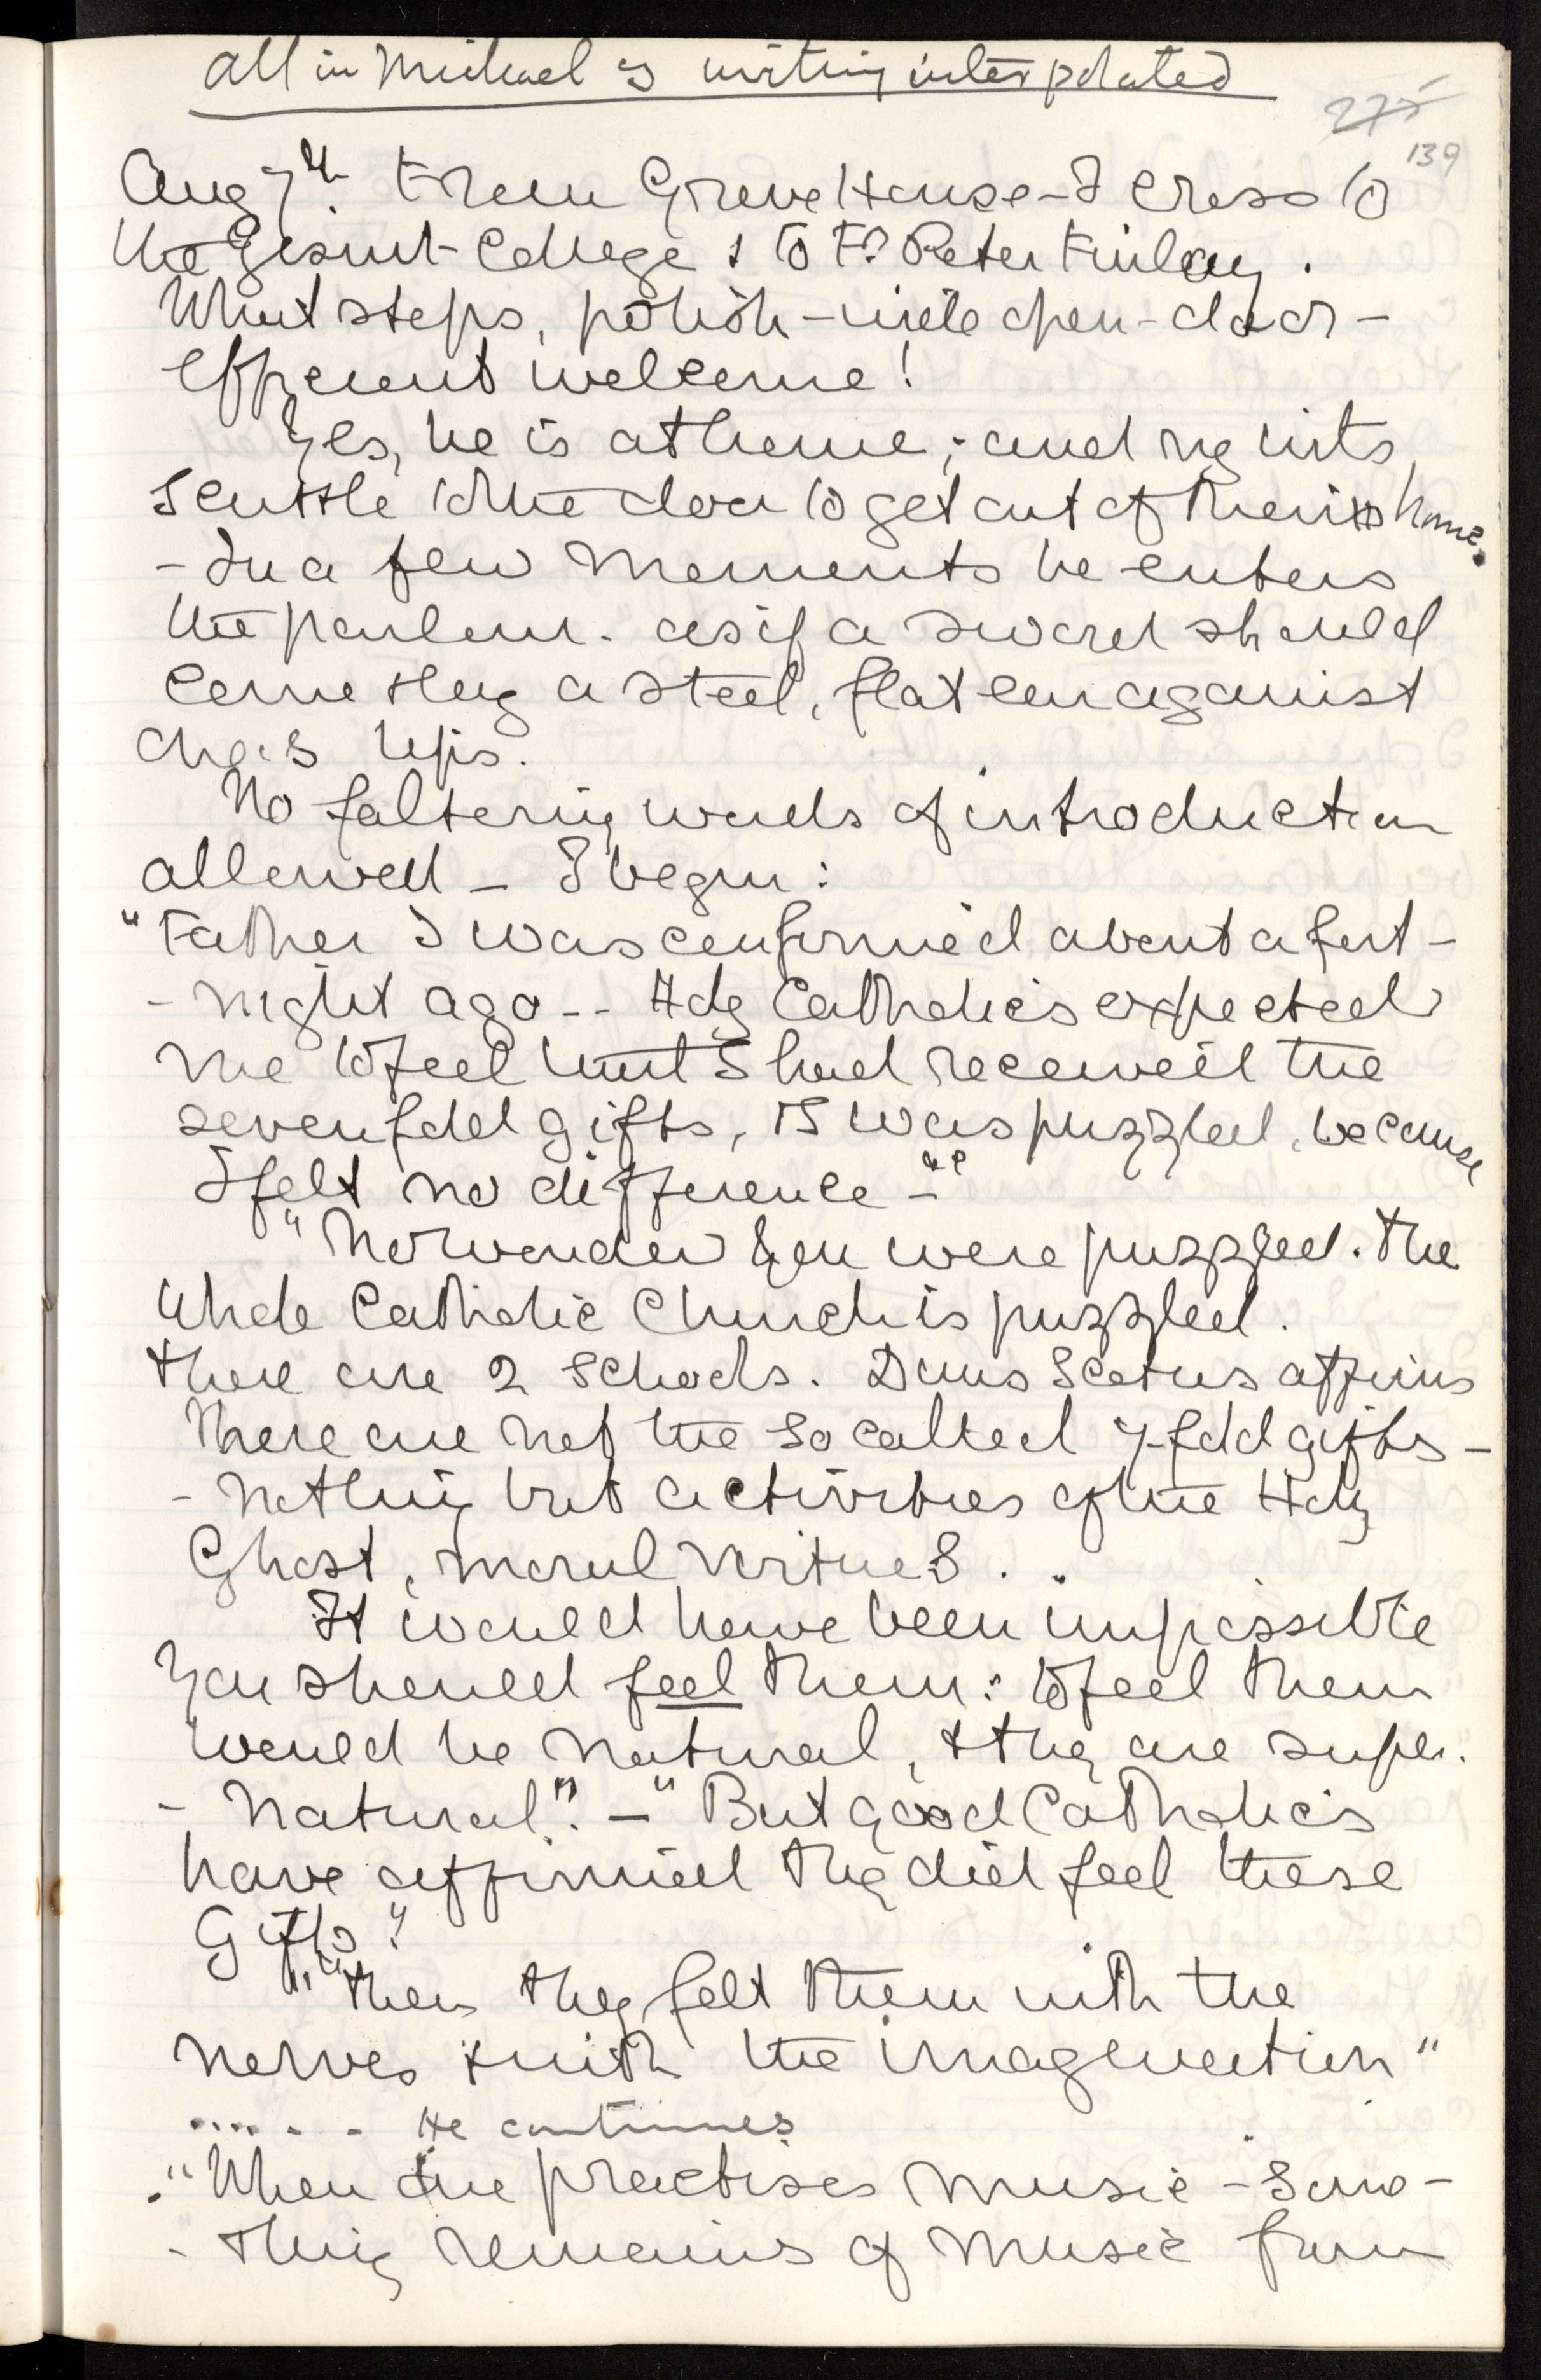 all in Michael's writing interpolated
275
139
Aug 7th. From Grove House - I cross to
the Jesuit College & to Fr. Peter Finlay.
What steps, polish - wide open - door -
efficient welcome!
Yes, he is at home; and ng
scuttle to the door to get out of their home.
- In a few moments he enters
the parlour. as if a sword should
come a steel, flat against
lips.
No faltering words of introduction
allowed - I begin:
"Father I was confirmed about a fort-
- night ago -- Holy Catholics expected
me to feel that I had received the
sevenfold gifts, & I was puzzled, because
I felt no difference -"
"No wonder you were puzzled. The
whole Catholic Church is puzzled.
There are 2 schools. Duns Scotus affirms
there are not the so called 7-fold gifts -
- nothing but activities of the Holy
Ghost, moral virtues . .
It would have been impossible
you should feel them: to feel them
would be natural, & they are super.
- natural". - "But good Catholics
have affirmed they did feel these
Gifts"
"Then they felt them with the
nerves & with the imagination"
..... - - He continues
"When one practises music - some-
- thing remains of music from